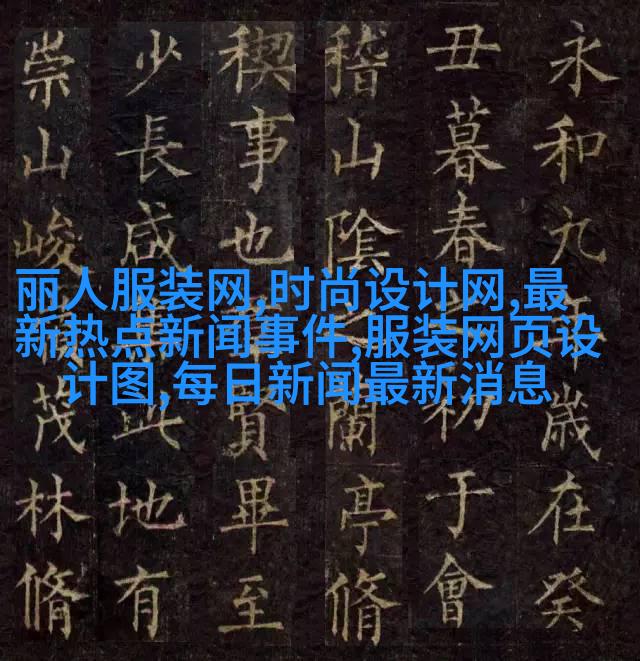 永和九年歲在癸
丑暮春初于會
稽山陰之蘭亭脩
禊事也賢畢至
少長咸集此地有
崇山峻茂林脩
丽人服装网,时尚设计网,最
新热点新闻事件,服装网页设
计图,每日新闻最新消息